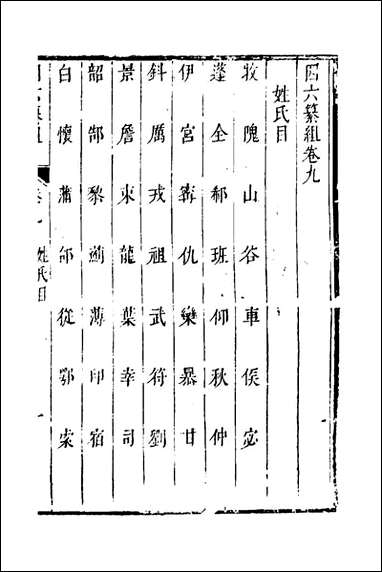 四六纂組卷九
姓氏目
牧隗山谷車侯宓
蓬全郗班仰秋仲
伊宮寗仇欒暴甘
斜厲戎祖武符劉
景詹束龍葉幸司
韶郜黎薊薄印宿
白懷蒲邰從鄂索
姓氏目